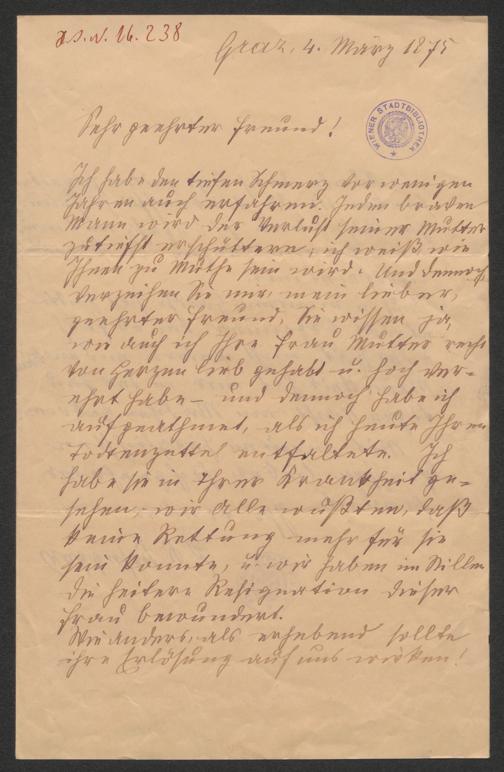 H.I.N. 16.238
Graz, 4. März 1875
WIENER STADTBIBLIOTHEK
Sehr geehrter Freund!
Ich habe den tiefen Schmerz vor wenigen
Jahren auch erfahren. Jeden braven
Mann wird der Verlust seiner Mutter
zutiefst erschüttern, ich weiß wie
Ihnen zu Muthe sein wird. Und dennoch
verzeihen Sie mir, mein lieber,
geehrter Freund, Sie wissen ja,
wie auch ich Ihre Frau Mutter recht
von Herzen lieb gehabt u. hoch ver-
ehrt habe – und dennoch habe ich
aufgeathmet, als ich heute Ihren
Todtenzettel entfaltete. Ich
habe sie in Ihrer Krankheit ge-
sehen, wir Alle wußten, daß
keine Rettung mehr für sie
sein konnte, u. wir haben im Stillen
die heitere Resignation dieser
Frau bewundert.
Wie anders, als erhebend sollte
ihre Erlösung auf uns wirken!